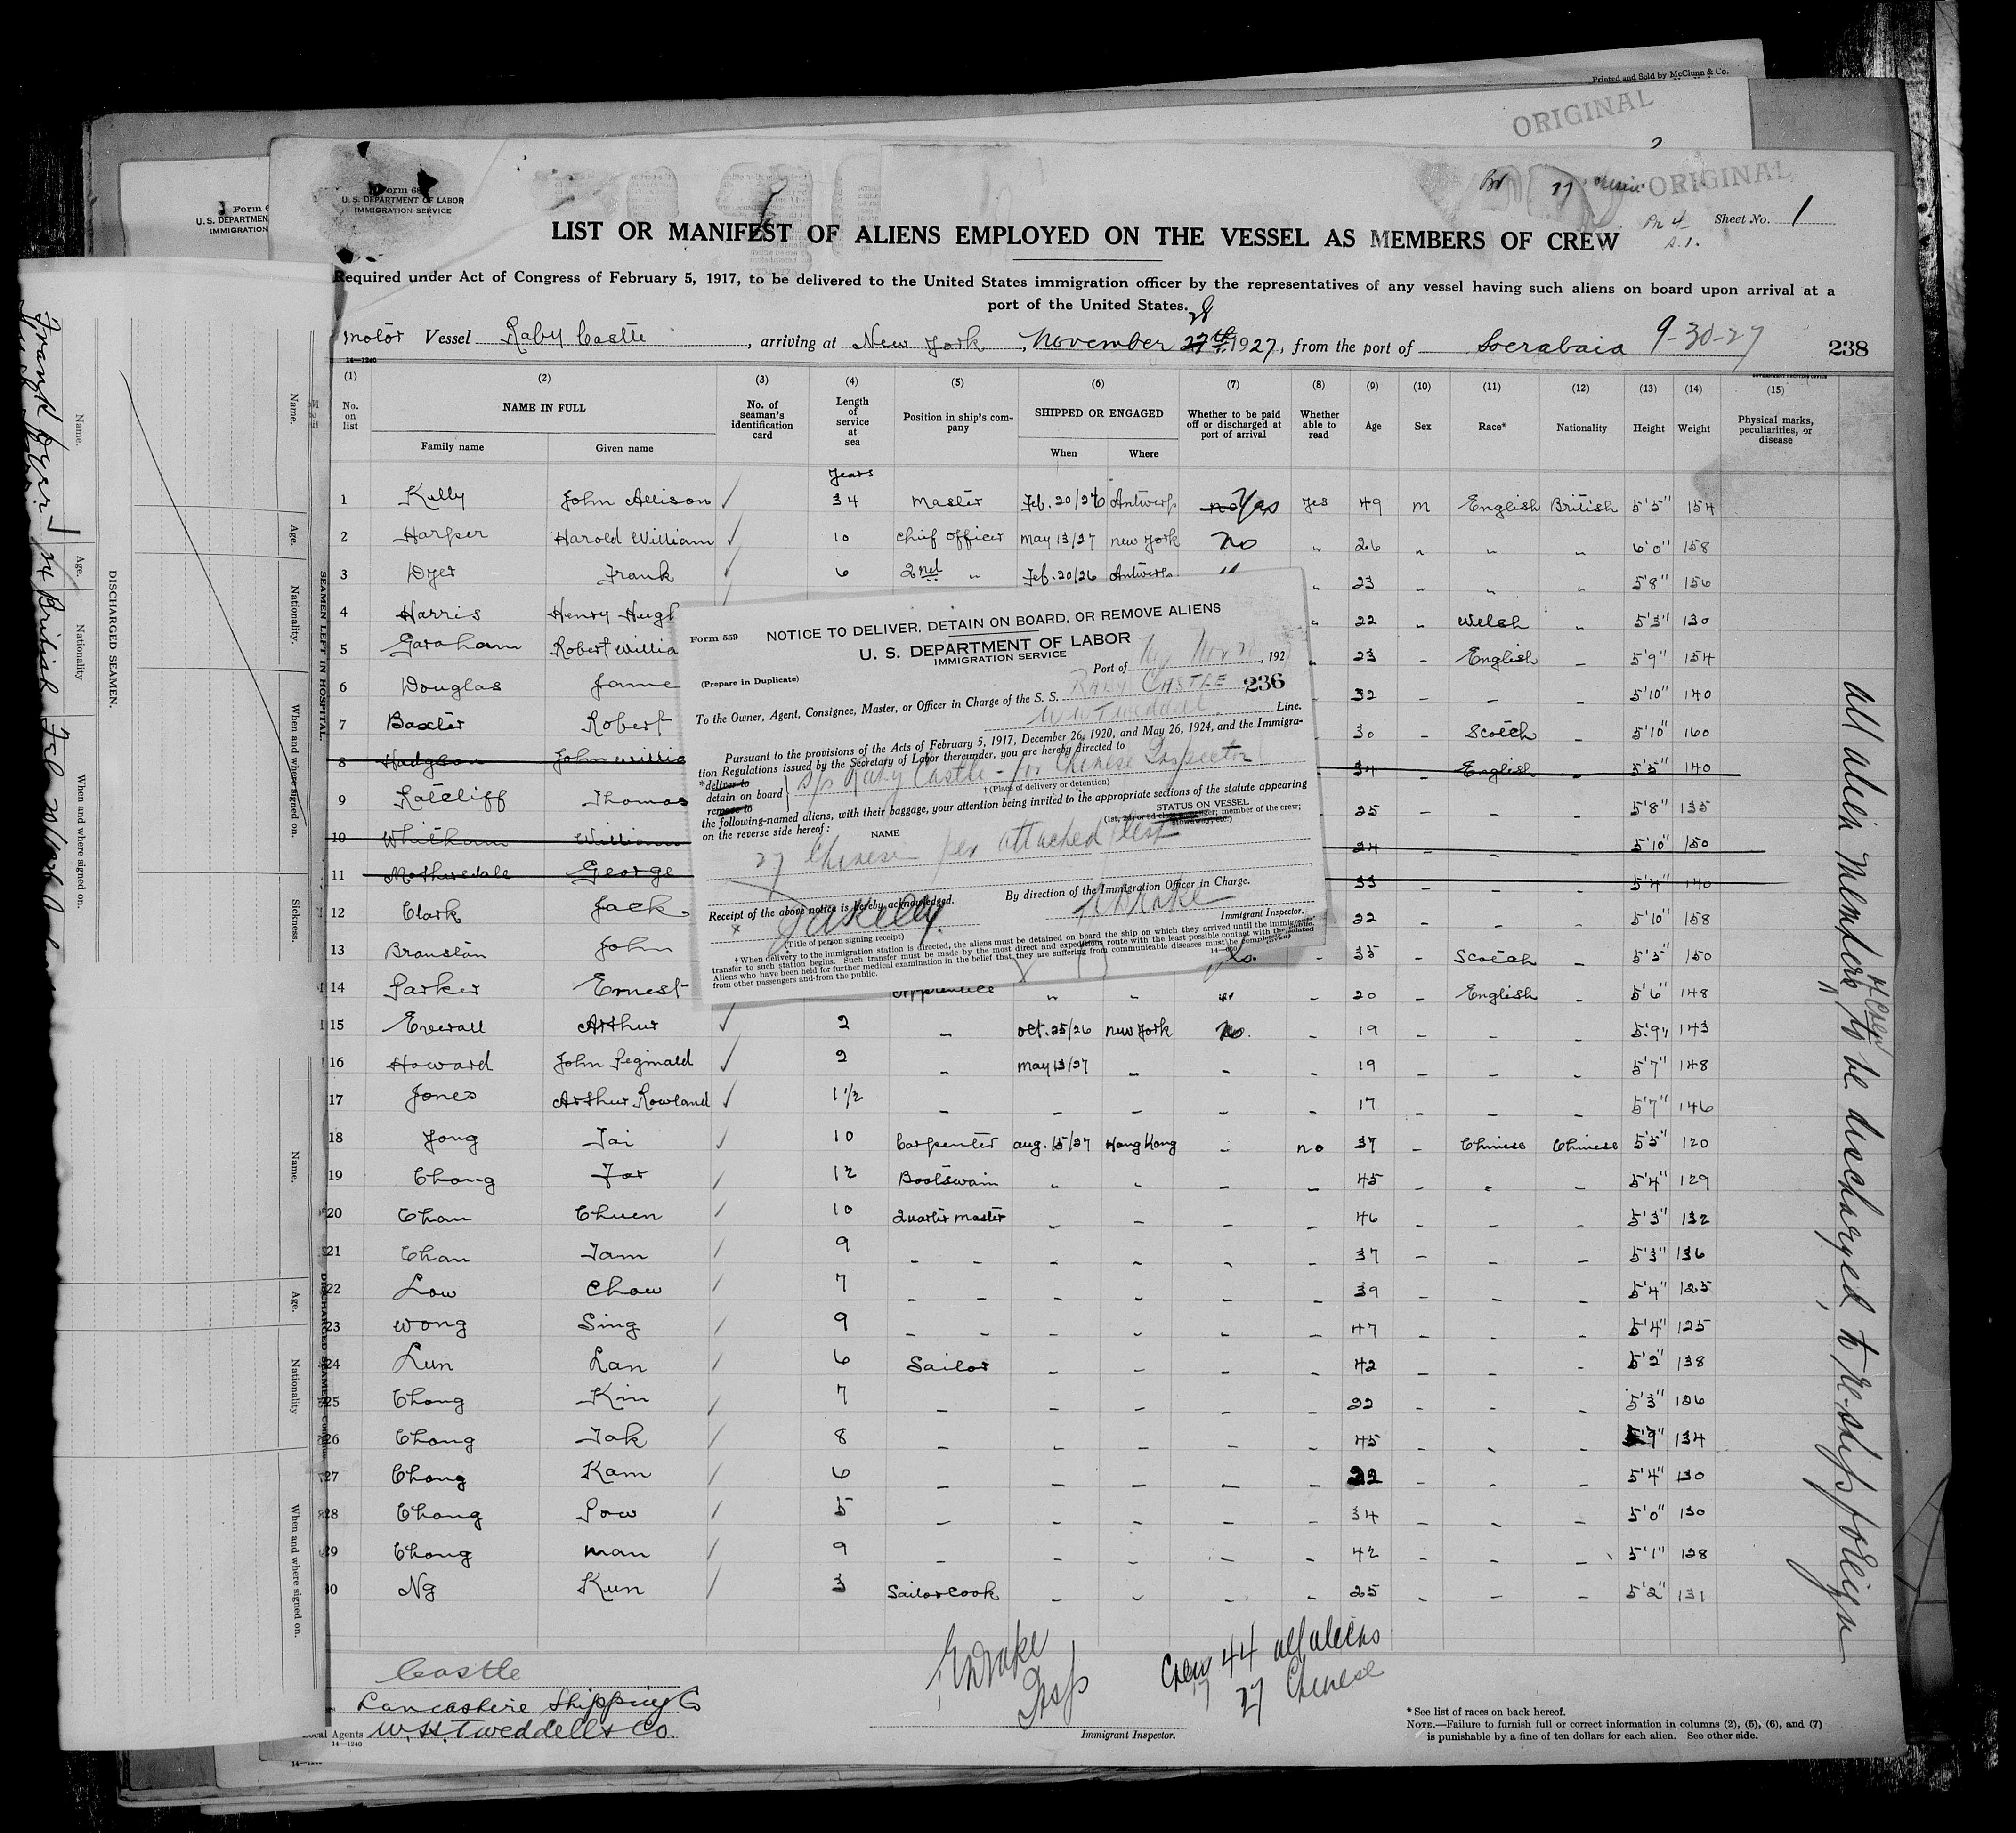 Printed and Sold by McClunn & Co.
ORIGINAL
ORIGINAL
U. S. DEPARTMENT OF LABOR
IMMIGRATION SERVICE
Sheet No. 1
LIST OR MANIFEST OF ALIENS EMPLOYED ON THE VESSEL AS MEMBERS OF CREW
Required under Act of Congress of February 5, 1917, to be delivered to the United States immigration officer by the representatives of any vessel having such aliens on board upon arrival at a
port of the United States.
28
motor Vessel Raby Castle, arriving at New York, November 27th 1927, from the port of Soerabaia 9-30-27
238
14-1240
(1) (2) (3) (4) (5) (6) (7) (8) (9) (10) (11) (12) (13) (14) (15)
No. on list NAME IN FULL Family name Given name No. of seaman's identification card Length of service at sea Position in ship's company SHIPPED OR ENGAGED When Where Whether to be paid off or discharged at port of arrival Whether able to read Age Sex Race* Nationality Height Weight Physical marks, peculiarities, or disease
years
1 Kelly John Allison 34 Master Feb. 20/26 Antwerp no Yes yes 49 M English British 5'5" 154
2 Harper Harold William 10 Chief Officer May 13/27 New York No " 26 " " " 6'0" 158
3 Dyer Frank 6 2nd " Feb. 20/26 Antwerp " " 23 " " " 5'8" 156
4 Harris Henry Hugh " 22 " Welsh " 5'3" 130
5 Garaham Robert Willia 23 - English - 5'9" 154
6 Douglas Jame 32 - - - 5'10" 140
7 Baxter Robert 30 - Scotch - 5'10 160
8 Hudgson John Willia 34 - English - 5'5" 140
9 Ratcliff Thomas 25 - - - 5'8" 135
10 Whitham William 24 - - - 5'10" 150
11 Mothersdale George 33 - - - 5'4" 140
12 Clark Jack 22 - - - 5'10" 158
13 Branston John 35 - Scotch - 5'5" 150
14 Parker Ernest Apprentice " " " - 20 - English - 5'6" 148
15 Everall Arthur 2 - Oct. 25/26 New York No. - 19 - - - 5'9" 143
16 Howard John Reginald 2 - May 13/27 - - - 19 - - - 5'7" 148
17 Jones Arthur Rowland 1 1/2 - - - - - 17 - - - 5'7" 146
18 Jong Tai 10 Carpenter Aug. 15/27 Hong Kong - no 37 - Chinese Chinese 5'5" 120
19 Chong For 12 Boatswain " " - - 45 - - - 5'4" 129
20 Chan Chuen 10 Quarter Master - - - - 46 - - - 5'3" 132
21 Chan Tam 9 - - - - - - 37 - - - 5'3" 136
22 Low Chow 7 - - - - - - 39 - - - 5'4" 125
23 Wong Sing 9 - - - - - - 47 - - - 5'4" 125
24 Lun Lan 6 Sailor - - - - 42 - - - 5'2" 138
25 Chong Kin 7 - - - - - 22 - - - 5'3" 126
26 Chong Tak 8 - - - - - 45 - - - 5'9" 134
27 Chong Kam 6 - - - - - 22 - - - 5'4" 130
28 Chong Pow 5 - - - - - 34 - - - 5'0" 130
29 Chong Man 9 - - - - - 42 - - - 5'1" 128
30 Ng Kun 3 Sailor Cook - - - - 25 - - - 5'2" 131
Form 559
NOTICE TO DELIVER, DETAIN ON BOARD, OR REMOVE ALIENS
U. S. DEPARTMENT OF LABOR
IMMIGRATION SERVICE
(Prepare in Duplicate)
Port of NY Nov , 192
To the Owner, Agent, Consignee, Master, or Officer in Charge of the S. S. RABY CASTLE 236
W H Tweddell Line.
Pursuant to the provisions of the Acts of February 5, 1917, December 26, 1920, and May 26, 1924, and the Immigra-
tion Regulations issued by the Secretary of Labor thereunder, you are hereby directed to
*deliver to
detain on board
remove to
S/S Raby Castle - for Chinese Inspector
† (Place of delivery or detention)
the following-named aliens, with their baggage, your attention being invited to the appropriate sections of the statute appearing
on the reverse side hereof:
NAME
STATUS ON VESSEL
27 Chinese per attached list
Receipt of the above notice is hereby acknowledged.
By direction of the Immigration Officer in Charge.
JAKelly.
Immigrant Inspector.
(Title of person signing receipt)
† When delivery to the immigration station is directed, the aliens must be detained on board the ship on which they arrived until the immigrants'
transfer to such station begins. Such transfer must be made by the most direct and expeditious route with the least possible contact with the public.
Aliens who have been held for further medical examination in the belief that they are suffering from communicable diseases must be completely isolated
from other passengers and from the public.
All alien members of crew to be discharged to re-ship foreign
Castle
Lancashire Shipping Co
Local Agents W. H. Tweddell & Co.
14-1240
Drake
Insp
Immigrant Inspector.
Crew 44 all aliens
27 Chinese
* See list of races on back hereof.
NOTE.—Failure to furnish full or correct information in columns (2), (5), (6), and (7)
is punishable by a fine of ten dollars for each alien. See other side.
Frank Dyer 24 British
DISCHARGED SEAMEN.
SEAMEN LEFT IN HOSPITAL.
Name. Age. Nationality. When and where signed on. Sickness.
Name. Age. Nationality When and where signed on.